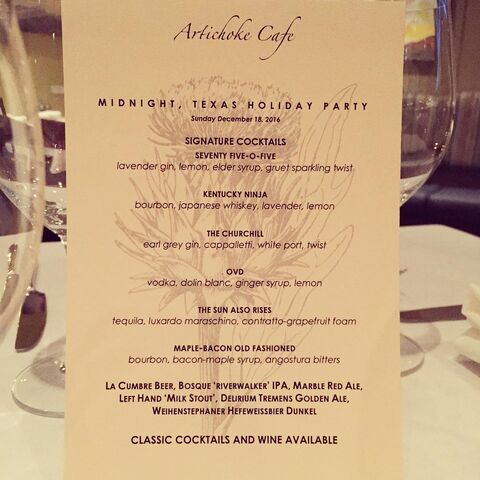 Artichoke Cafe
MIDNIGHT, TEXAS HOLIDAY PARTY
Sunday December 18, 2016
SIGNATURE COCKTAILS
SEVENTY FIVE-O-FIVE
lavender gin, lemon, elder syrup, gruet sparkling twist
KENTUCKY NINJA
bourbon, japanese whiskey, lavender, lemon
THE CHURCHILL
earl grey gin, cappalletti, white port, twist
OVD
vodka, dolin blanc, ginger syrup, lemon
THE SUN ALSO RISES
tequila, luxardo maraschino, contratto-grapefruit foam
MAPLE-BACON OLD FASHIONED
bourbon, bacon-maple syrup, angostura bitters
LA CUMBRE BEER, BOSQUE 'RIVERWALKER' IPA, MARBLE RED ALE,
LEFT HAND 'MILK STOUT', DELIRIUM TREMENS GOLDEN ALE,
WEIHENSTEPHANER HEFEWEISSBIER DUNKEL
CLASSIC COCKTAILS AND WINE AVAILABLE